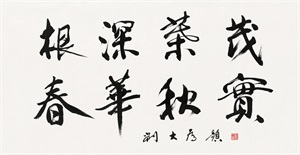 根深葉茂
春華秋實
劉大為